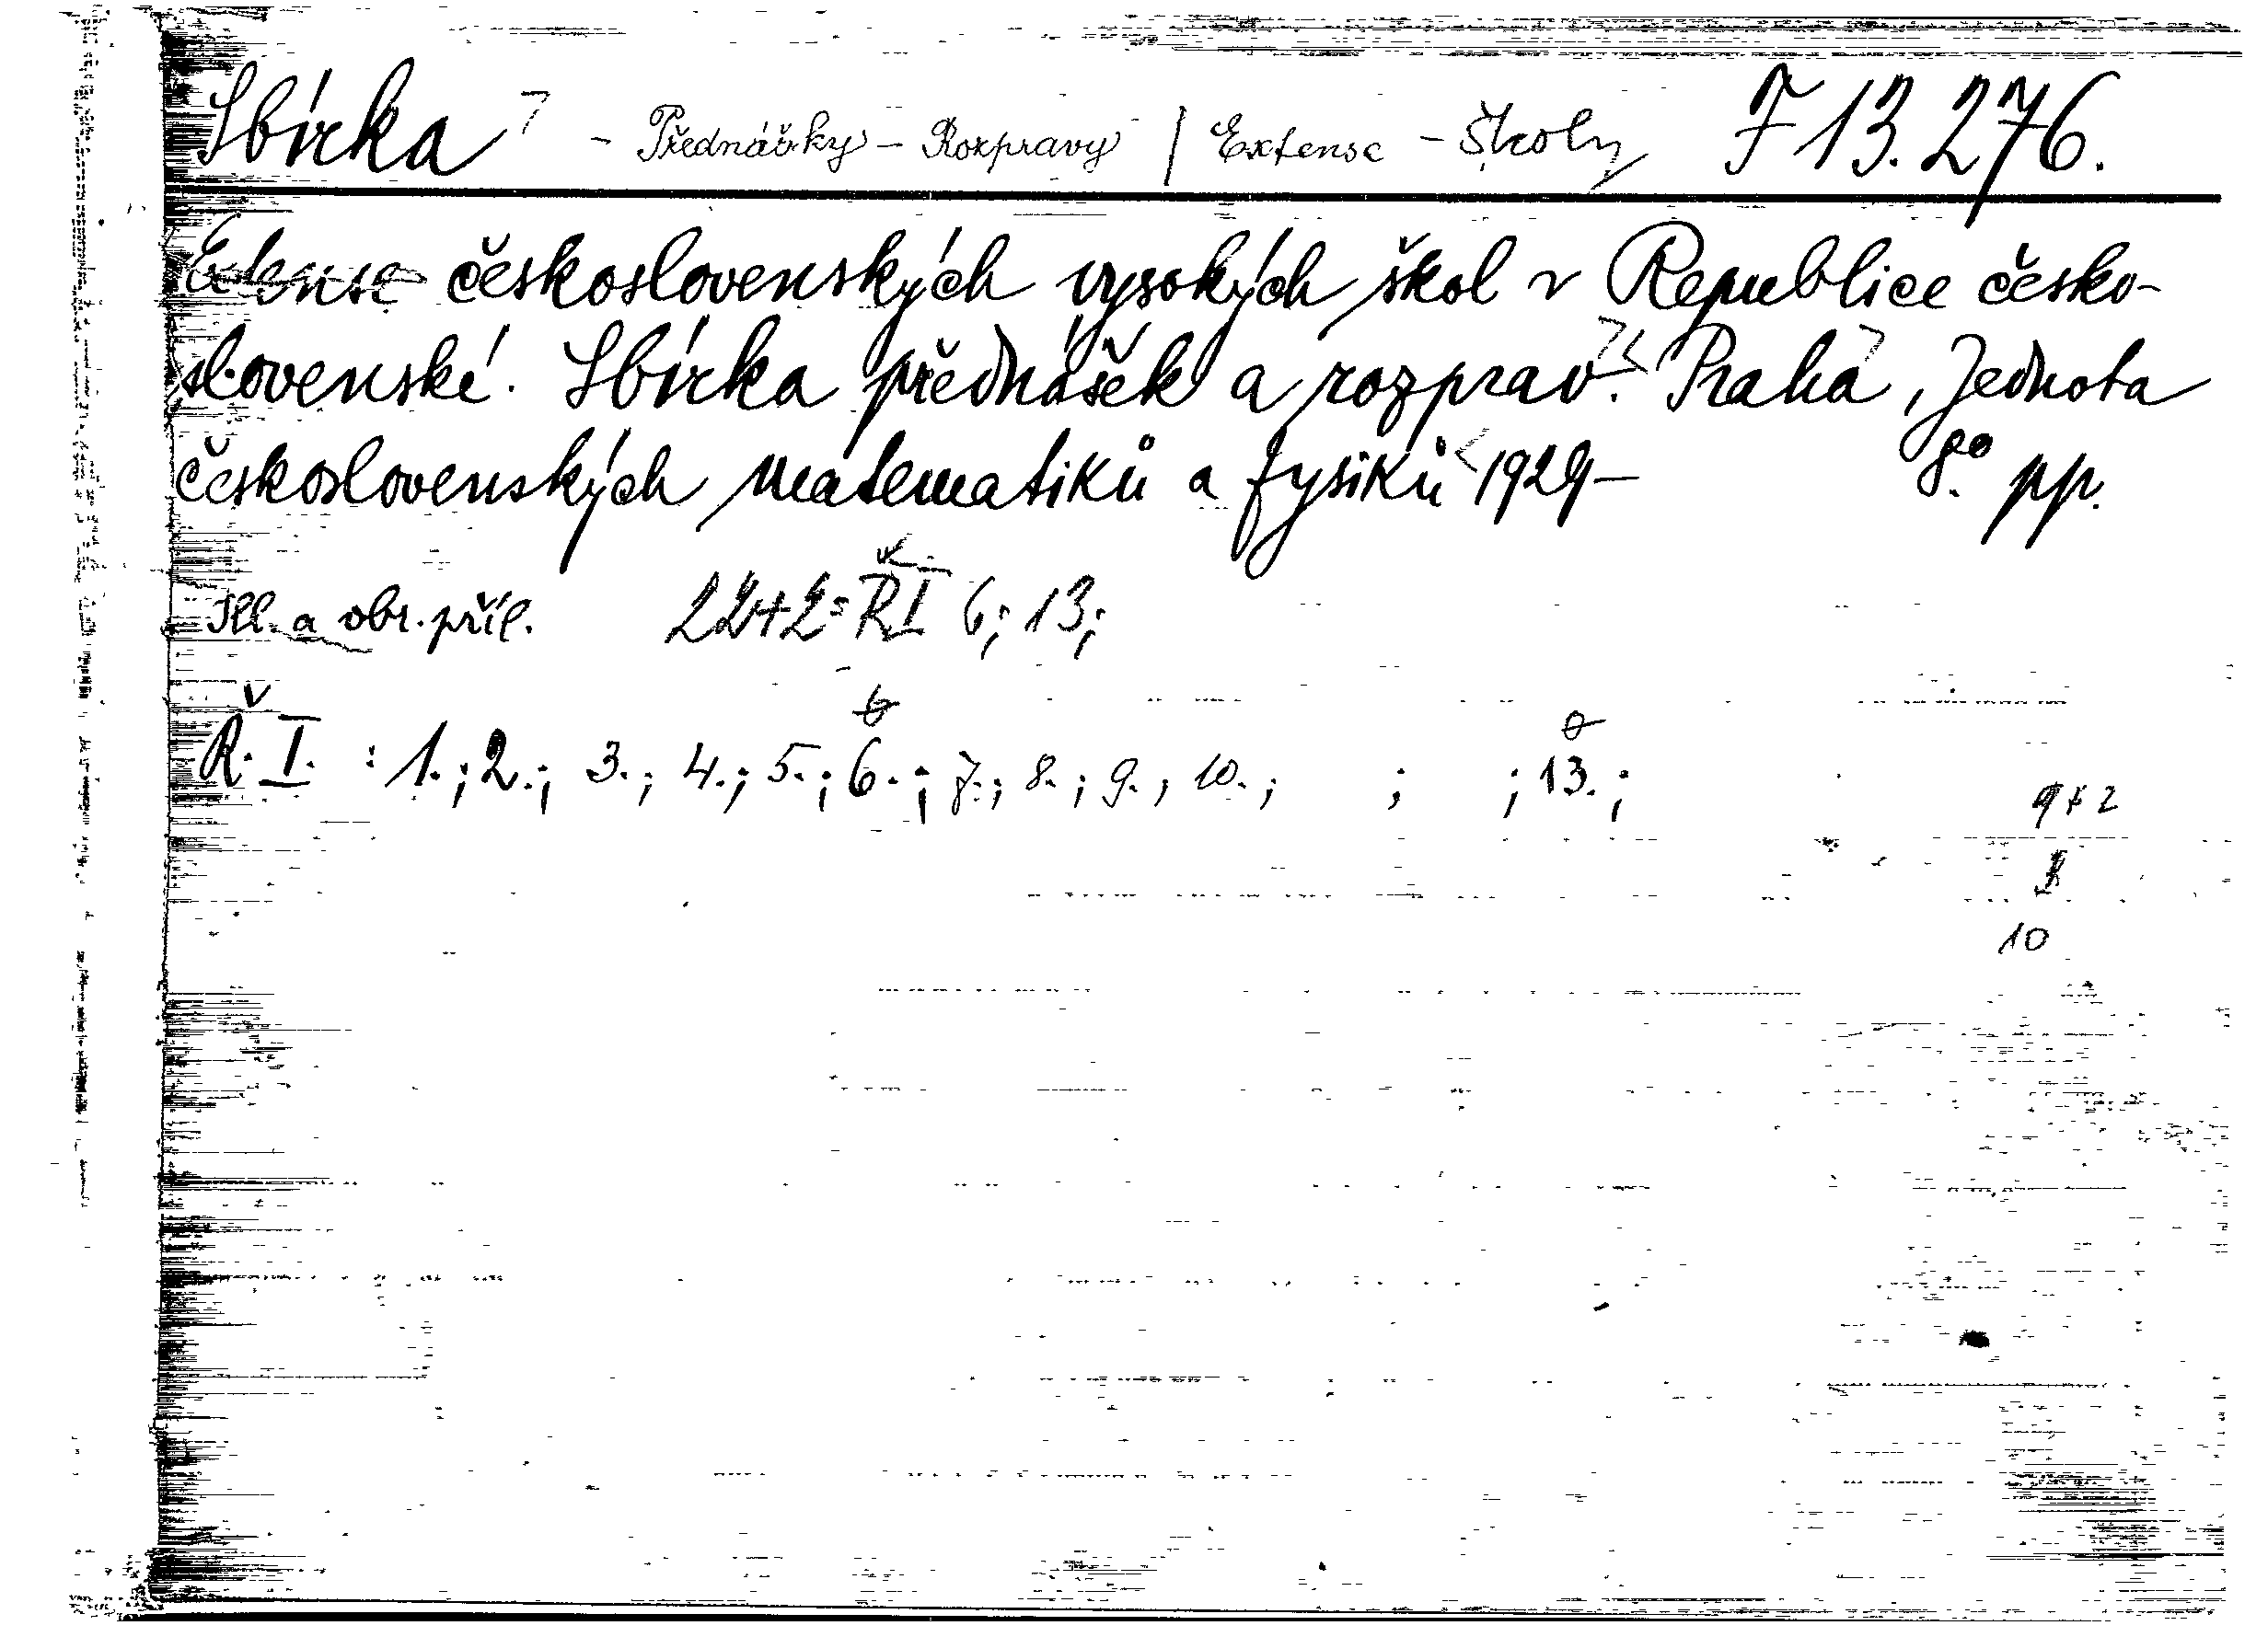 Sbírka - Přednášky - Rozpravy / Extense - Školy F 13.276.
Extense československých vysokých škol v Republice česko-
slovenské. Sbírka přednášek a rozprav. Praha, Jednota
československých matematiků a fysiků 1929– 8° pp.
Ill. a obr. příl. 22+2= Ř I 6; 13;
Ř. I. : 1.; 2.; 3.; 4.; 5.; 6.; 7.; 8.; 9.; 10.; ; ; 13.;
9+2
10